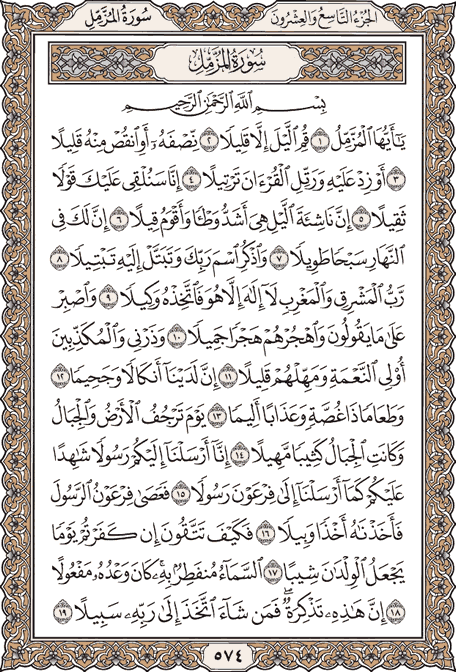 الجزء التاسع والعشرون سورة المزمل
سُورَةُ المُزَّمِّل
بِسْمِ اللَّهِ الرَّحْمَٰنِ الرَّحِيمِ
يَٰٓأَيُّهَا ٱلْمُزَّمِّلُ ١ قُمِ ٱلَّيْلَ إِلَّا قَلِيلًا ٢ نِّصْفَهُۥٓ أَوِ ٱنقُصْ مِنْهُ قَلِيلًا
٣ أَوْ زِدْ عَلَيْهِ وَرَتِّلِ ٱلْقُرْءَانَ تَرْتِيلًا ٤ إِنَّا سَنُلْقِى عَلَيْكَ قَوْلًا
ثَقِيلًا ٥ إِنَّ نَاشِئَةَ ٱلَّيْلِ هِىَ أَشَدُّ وَطْـًٔا وَأَقْوَمُ قِيلًا ٦ إِنَّ لَكَ فِى
ٱلنَّهَارِ سَبْحًا طَوِيلًا ٧ وَٱذْكُرِ ٱسْمَ رَبِّكَ وَتَبَتَّلْ إِلَيْهِ تَبْتِيلًا ٨
رَّبُّ ٱلْمَشْرِقِ وَٱلْمَغْرِبِ لَآ إِلَٰهَ إِلَّا هُوَ فَٱتَّخِذْهُ وَكِيلًا ٩ وَٱصْبِرْ
عَلَىٰ مَا يَقُولُونَ وَٱهْجُرْهُمْ هَجْرًا جَمِيلًا ١٠ وَذَرْنِى وَٱلْمُكَذِّبِينَ
أُو۟لِى ٱلنَّعْمَةِ وَمَهِّلْهُمْ قَلِيلًا ١١ إِنَّ لَدَيْنَآ أَنكَالًا وَجَحِيمًا ١٢
وَطَعَامًا ذَا غُصَّةٍ وَعَذَابًا أَلِيمًا ١٣ يَوْمَ تَرْجُفُ ٱلْأَرْضُ وَٱلْجِبَالُ
وَكَانَتِ ٱلْجِبَالُ كَثِيبًا مَّهِيلًا ١٤ إِنَّآ أَرْسَلْنَآ إِلَيْكُمْ رَسُولًا شَٰهِدًا
عَلَيْكُمْ كَمَآ أَرْسَلْنَآ إِلَىٰ فِرْعَوْنَ رَسُولًا ١٥ فَعَصَىٰ فِرْعَوْنُ ٱلرَّسُولَ
فَأَخَذْنَٰهُ أَخْذًا وَبِيلًا ١٦ فَكَيْفَ تَتَّقُونَ إِن كَفَرْتُمْ يَوْمًا
يَجْعَلُ ٱلْوِلْدَٰنَ شِيبًا ١٧ ٱلسَّمَآءُ مُنفَطِرٌۢ بِهِۦ ۚ كَانَ وَعْدُهُۥ مَفْعُولًا
١٨ إِنَّ هَٰذِهِۦ تَذْكِرَةٌ ۖ فَمَن شَآءَ ٱتَّخَذَ إِلَىٰ رَبِّهِۦ سَبِيلًا ١٩
٥٧٤